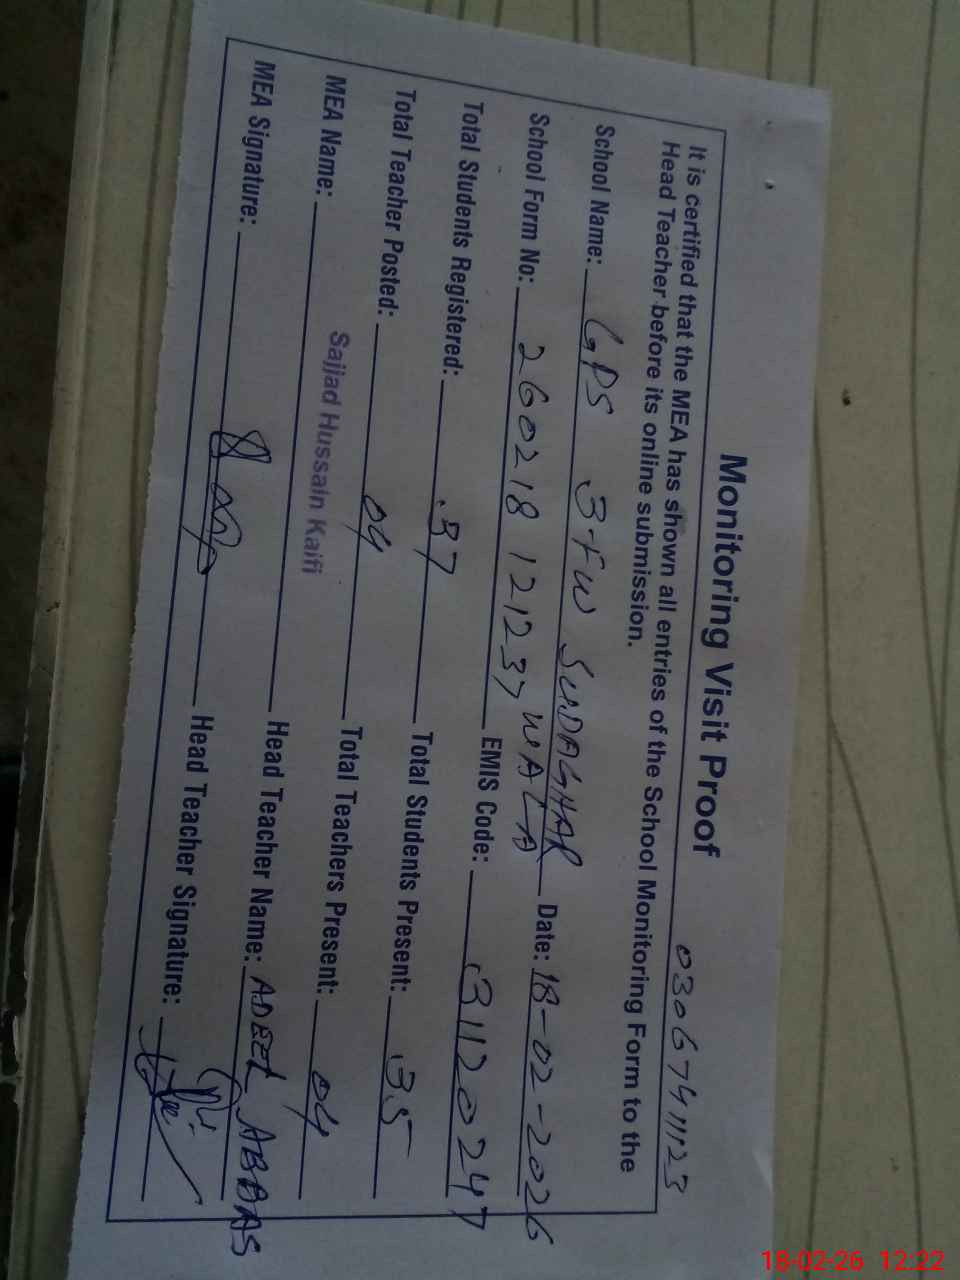 Monitoring Visit Proof 03067411123
It is certified that the MEA has shown all entries of the School Monitoring Form to the
Head Teacher before its online submission.
School Name: GPS 3+fW SUDAGHAR WALA Date: 18-02-2026
School Form No: 260218 121237 EMIS Code: 31120247
Total Students Registered: 37 Total Students Present: 35
Total Teacher Posted: 04 Total Teachers Present: 04
MEA Name: Sajjad Hussain Kaifi Head Teacher Name: ADEEL ABBAS
MEA Signature: Head Teacher Signature:
18-02-26 12:22